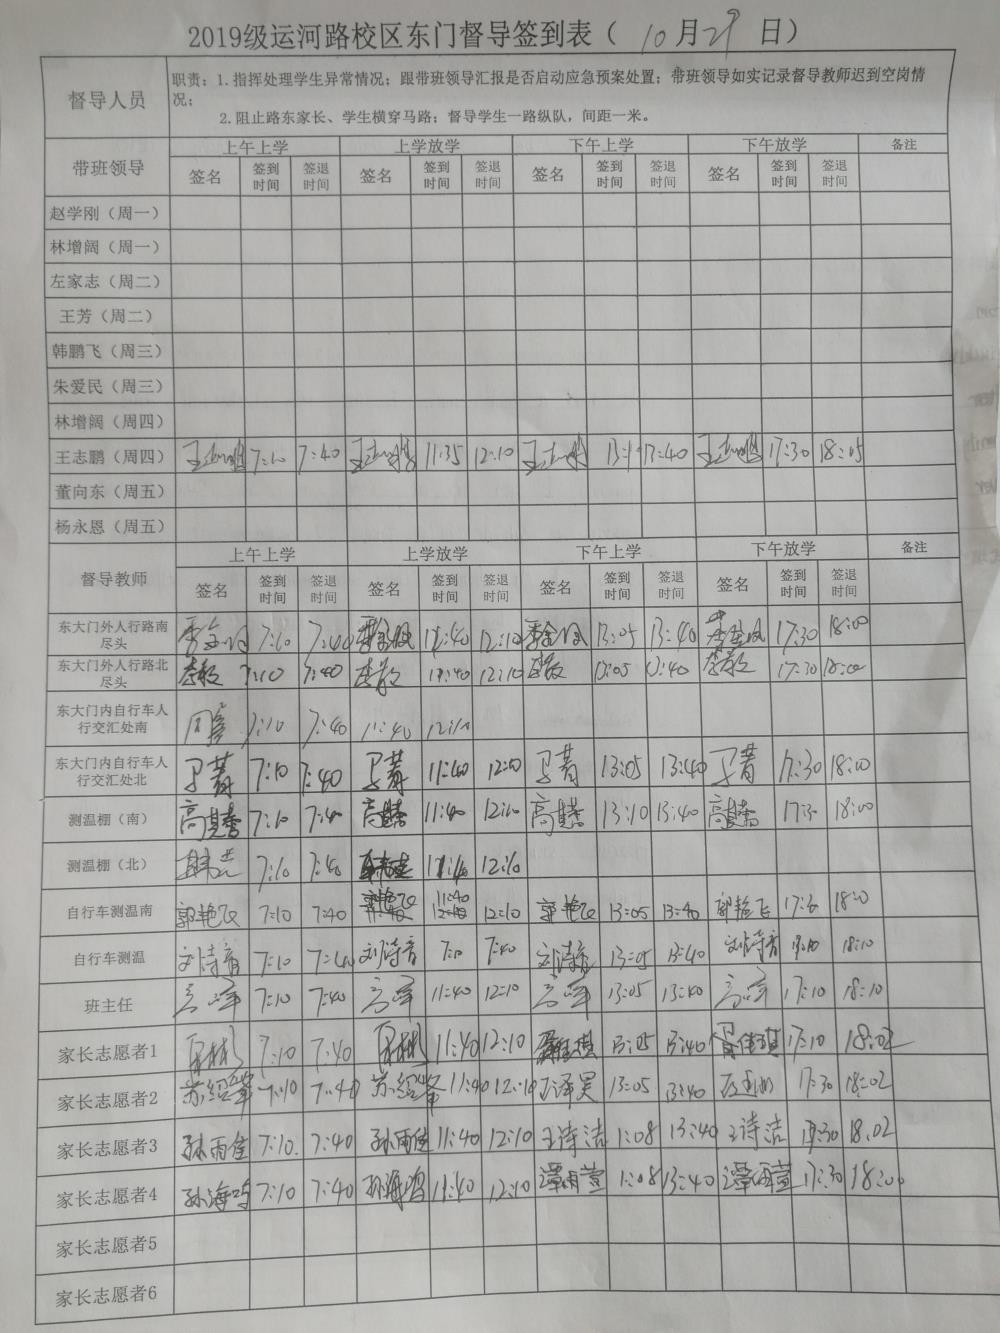 2019级运河路校区东门督导签到表（ 10月29日）
督导人员
职责：1.指挥处理学生异常情况；跟带班领导汇报是否启动应急预案处置；带班领导如实记录督导教师迟到空岗情
况；
2.阻止路东家长、学生横穿马路；督导学生一路纵队，间距一米。
带班领导 上午上学 上学放学 下午上学 下午放学 备注
签名 签到时间 签退时间 签名 签到时间 签退时间 签名 签到时间 签退时间 签名 签到时间 签退时间
赵学刚（周一）
林增阔（周一）
左家志（周二）
王芳（周二）
韩鹏飞（周三）
朱爱民（周三）
林增阔（周四）
王志鹏（周四） 王志鹏 7:10 7:40 王志鹏 11:35 12:10 王志鹏 13:40 王志鹏 17:30 18:05
董向东（周五）
杨永恩（周五）
督导教师 上午上学 上学放学 下午上学 下午放学 备注
签名 签到时间 签退时间 签名 签到时间 签退时间 签名 签到时间 签退时间 签名 签到时间 签退时间
东大门外人行路南尽头 7:10 7:40 11:40 12:10 13:05 13:40 17:30 18:00
东大门外人行路北尽头 7:10 7:40 11:40 12:10 13:05 13:40 17:30 18:00
东大门内自行车人行交汇处南 7:10 7:40 11:40 12:10
东大门内自行车人行交汇处北 7:10 7:40 11:40 12:10 13:05 13:40 17:30 18:00
测温棚（南） 7:10 7:40 11:40 12:10 13:10 13:40 17:30 18:00
测温棚（北） 7:10 7:40 11:40 12:10
自行车测温南 郭艳飞 7:10 7:40 郭艳飞 11:40 12:10 郭艳飞 13:05 13:40 郭艳飞 18:00
自行车测温 刘诗音 7:10 7:40 刘诗音 7:10 7:40 刘诗音 13:05 13:40 刘诗音 18:10
班主任 高峰 7:10 7:40 高峰 11:40 12:10 高峰 13:05 13:40 高峰 17:10 18:10
家长志愿者1 7:10 7:40 11:40 12:10 13:05 13:40 17:10 18:02
家长志愿者2 苏绍峰 7:10 7:40 苏绍峰 11:40 12:10 13:05 13:40 17:30 18:02
家长志愿者3 孙雨佳 7:10 7:40 孙雨佳 11:40 12:10 王诗洁 1:08 13:40 王诗洁 17:30 18:02
家长志愿者4 孙海鸣 7:10 7:40 孙海鸣 11:40 12:10 谭雨萱 1:08 13:40 谭雨萱 17:30 18:00
家长志愿者5
家长志愿者6